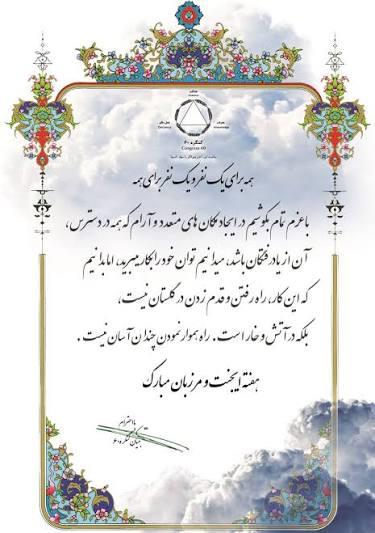 عدالت
Justice
عمل سالم
معرفت
Knowledge
کنگره ۶۰
Congress 60
همه برای یک نفر و یک نفر برای همه
با عزم تمام بکوشیم در ایجاد مکان های متعدد و آرام که همه در دسترس،
آن از یاد رفتگان باشد، میدانیم توان خود را بکار میبرید، اما بدانیم
که این کار، راه رفتن و قدم زدن در گلستان نیست،
بلکه در آتش و خار است. راه هموار نمودن چندان آسان نیست.
هفته ایجنت و مرزبان مبارک
با احترام